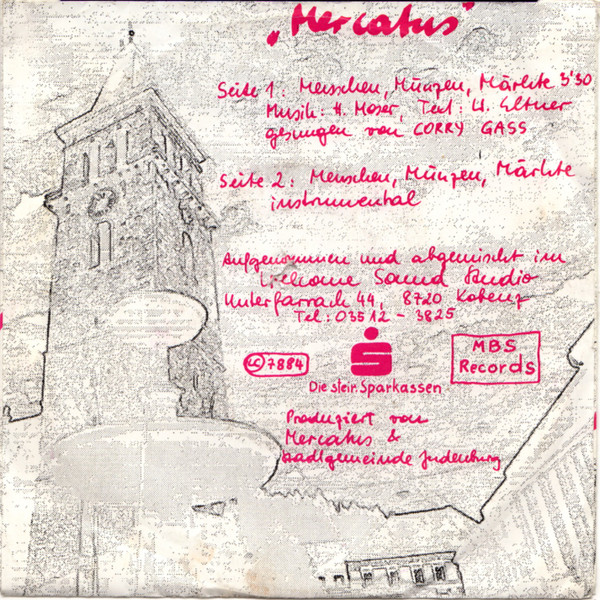 „Mercatus"
Seite 1: Menschen, Münzen, Märkte 3'30
Musik: H. Moser, Text: U. Eltner
gesungen von CORRY GASS
Seite 2: Menschen, Münzen, Märkte
instrumental
Aufgenommen und abgemischt im
Welcome Sound Studio
Unterfarrach 44, 8720 Kobenz
Tel: 03512 - 3825
LC 7884
MBS
Records
Die steir. Sparkassen
Produziert von
Mercatus &
Stadtgemeinde Judenburg